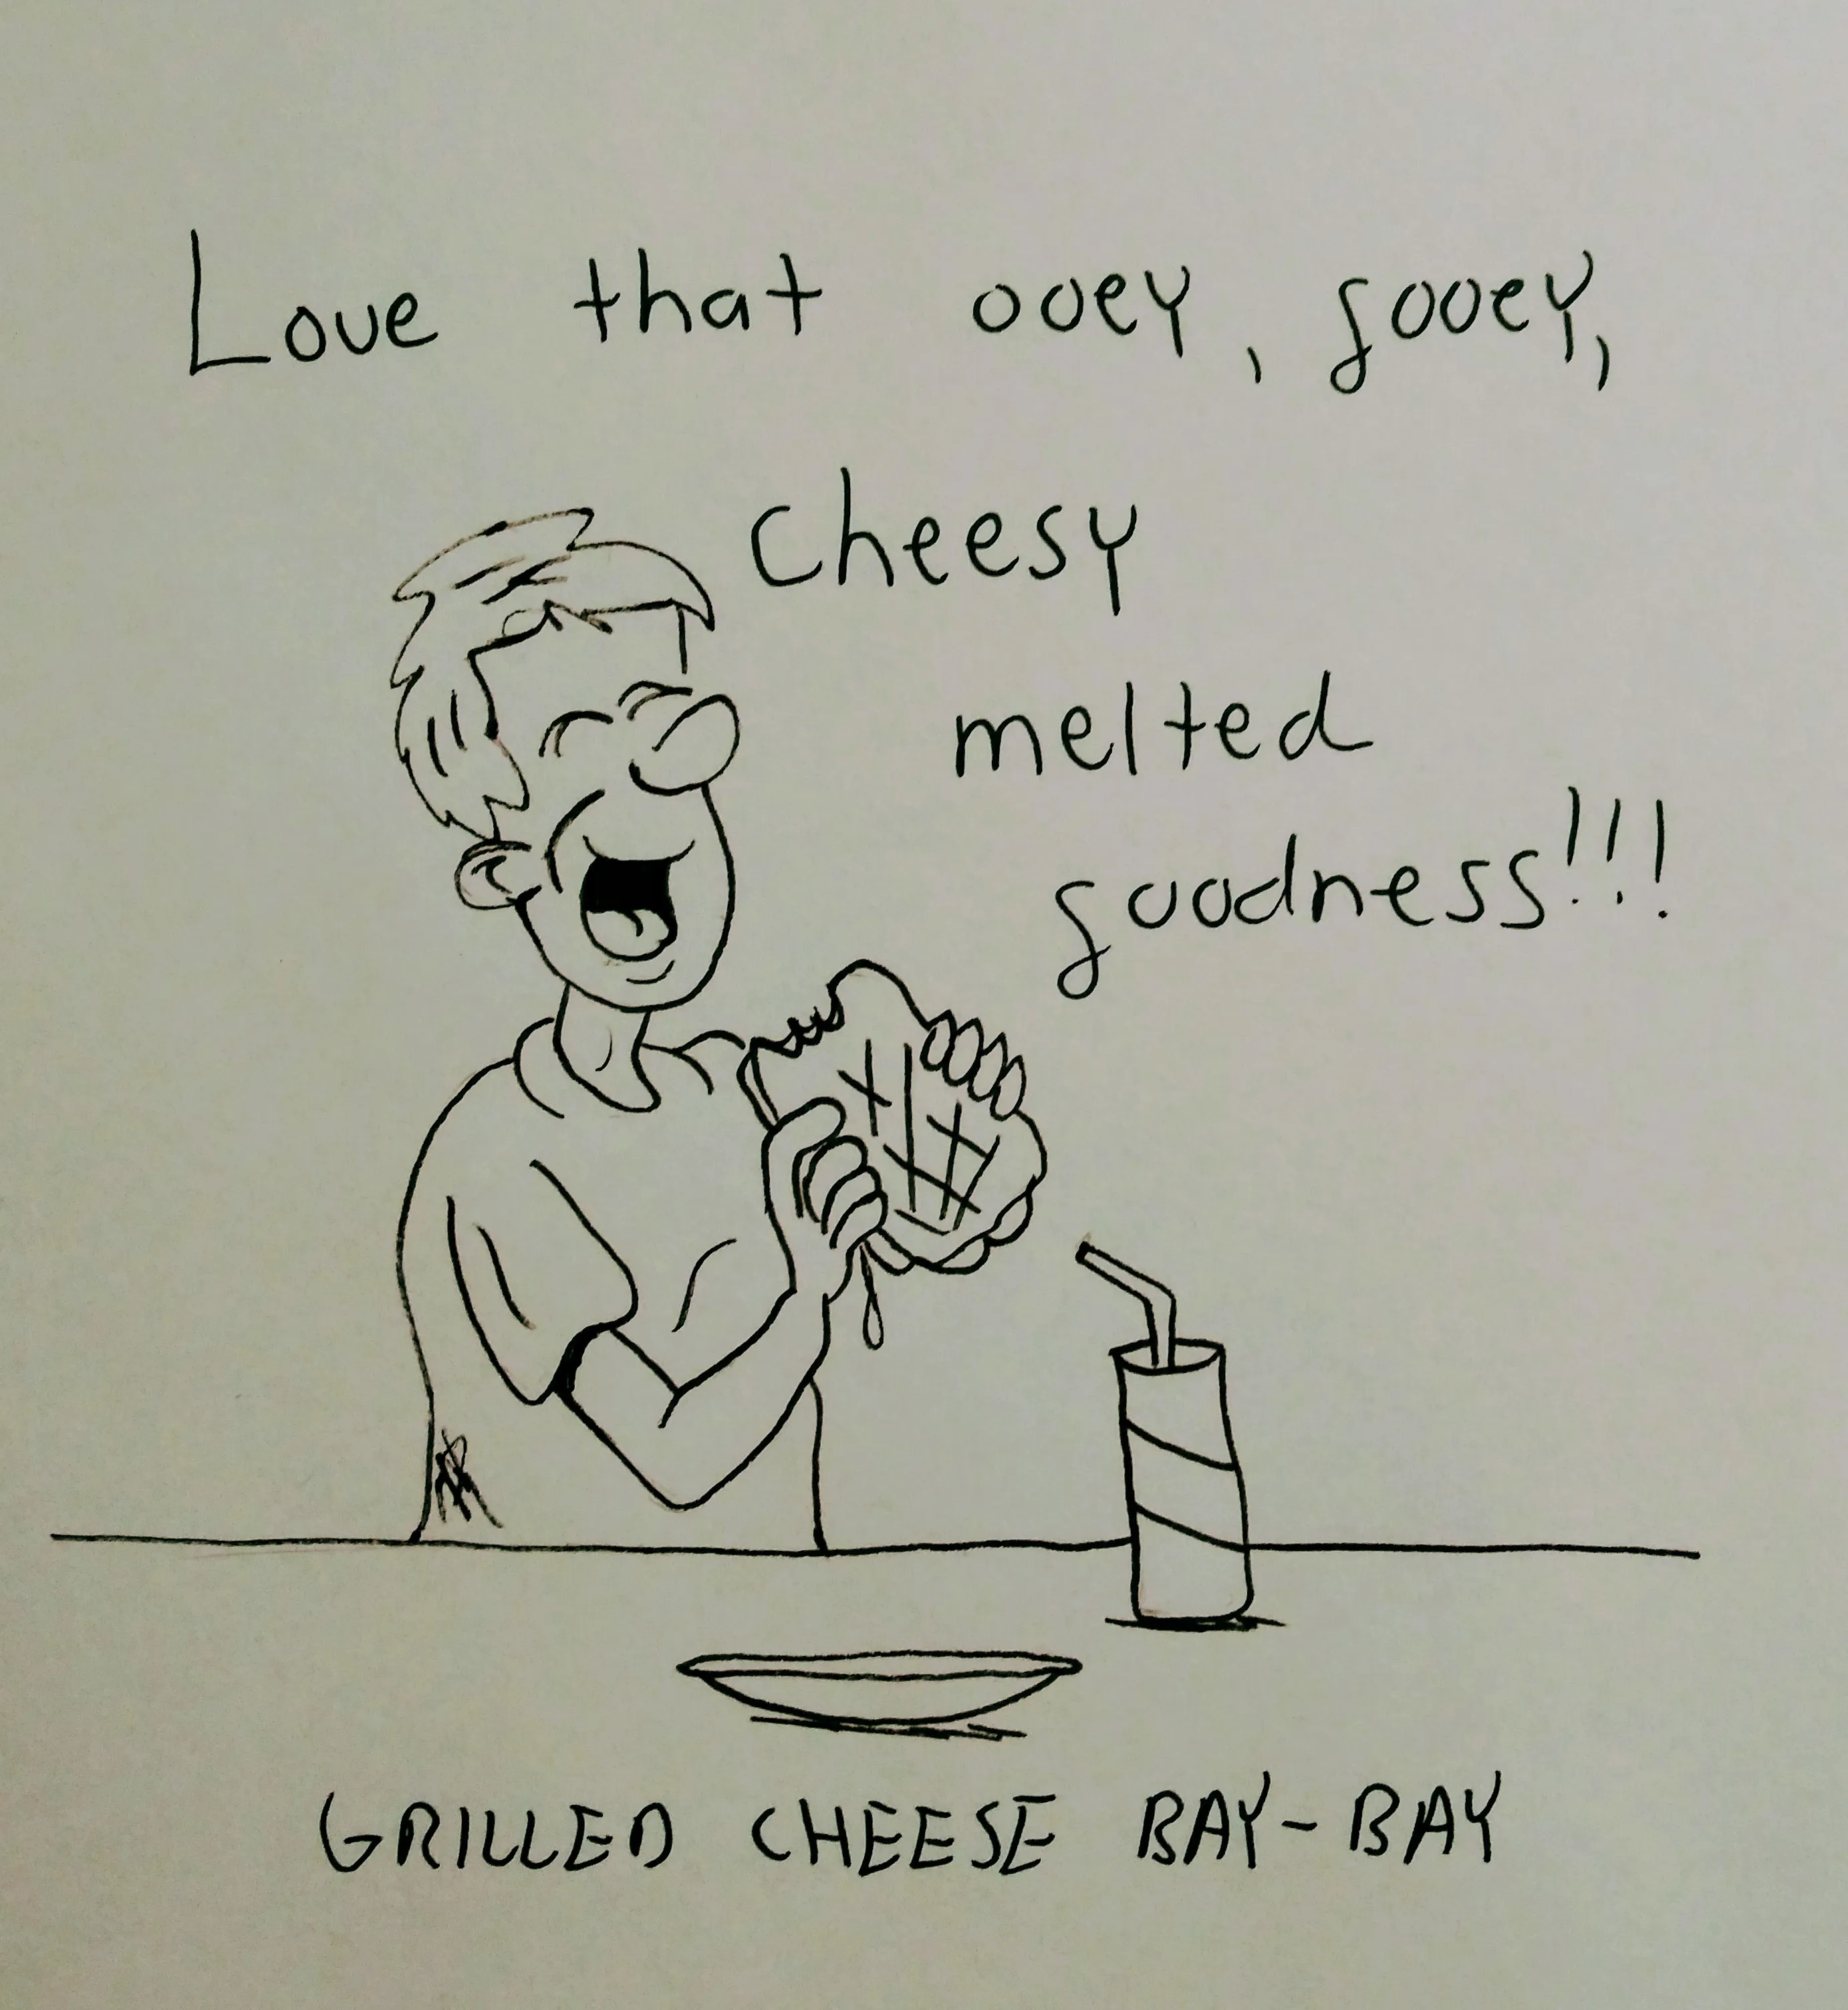 Love that ooey, gooey,
cheesy
melted
goodness!!!
GRILLED CHEESE BAY-BAY